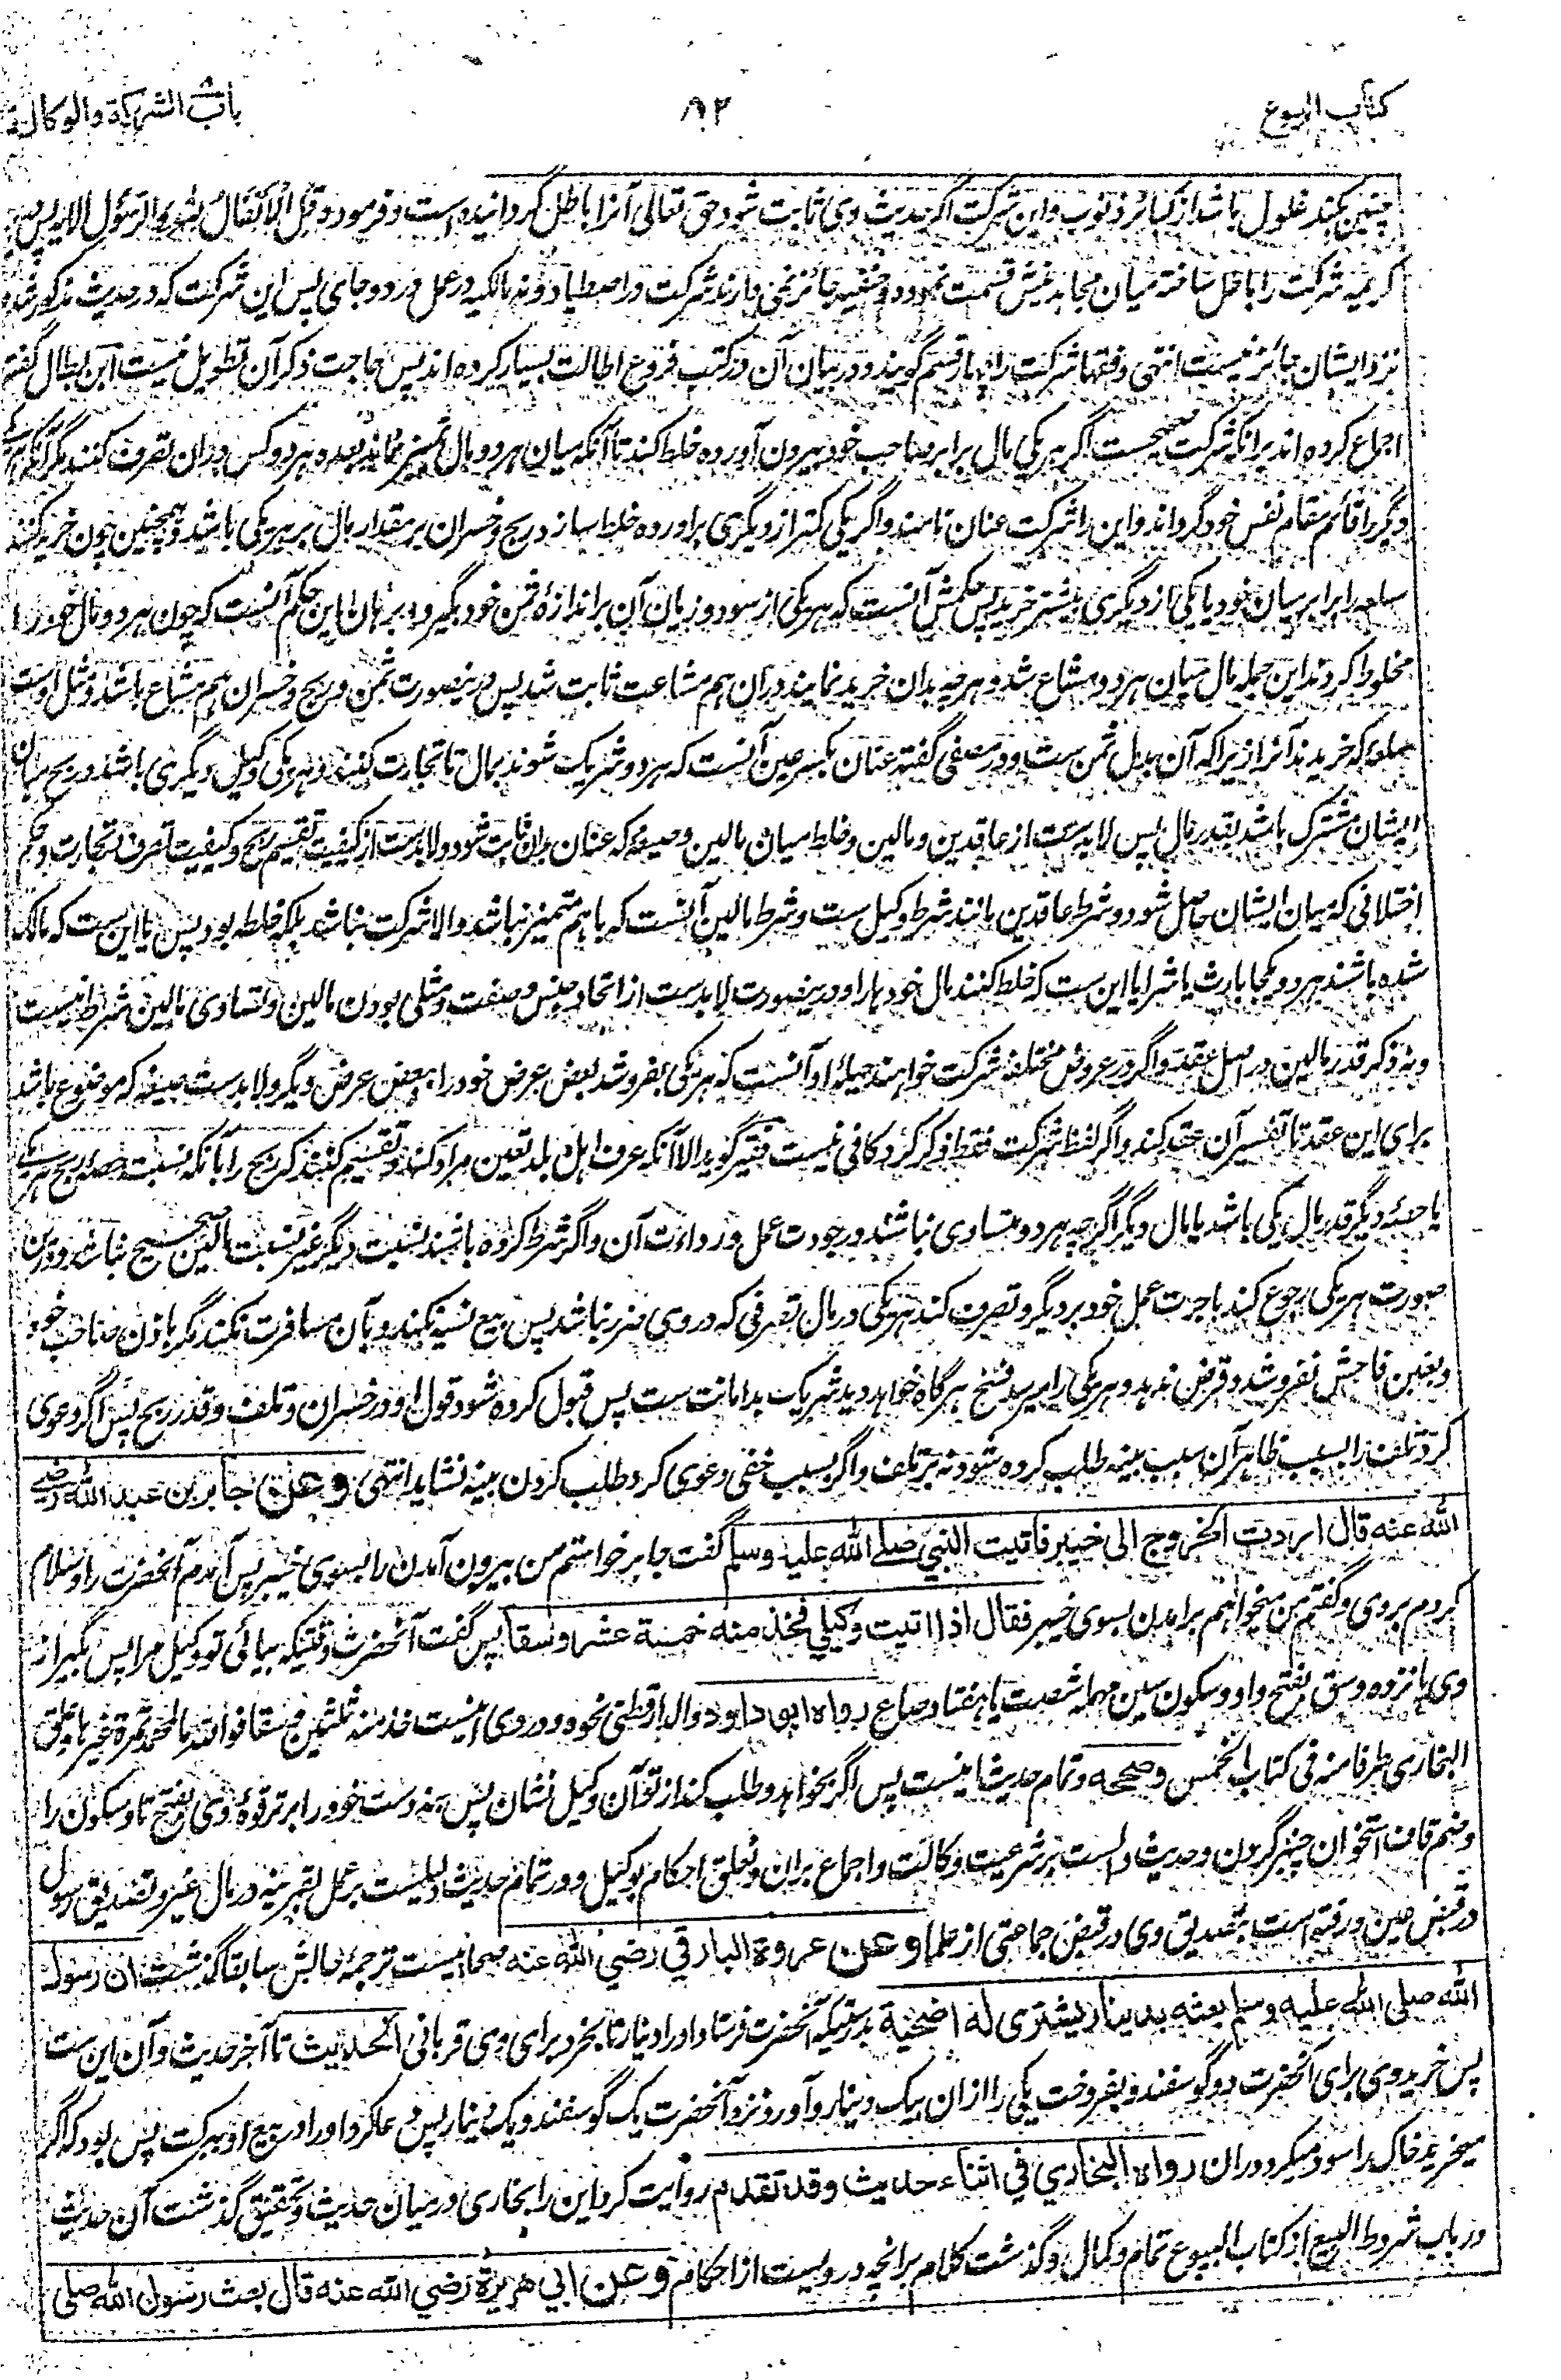 کتاب البیوع
۸۲
باب الشرکة والوکالة
چنین بکند غلول باشد از کبائر ذنوب و این شرکت اگر حدیث وی ثابت شود حق تعالی آنرا باطل گردانیده است و فرمود و قل الانفال لله والرسول الآیه پس
کریمه شرکت را باطل ساخته میان مجاهدینش قسمت نمود و حنفیه جائز نمی دارند شرکت در اصطیاد و نه مالکیه در عمل در دو جای پس این شرکت که در حدیث مذکور شده
نزد ایشان جائز نیست انتهی و فقها شرکت را چهار قسم گویند و در بیان آن در کتب فروع اطالت بسیار کرده اند پس حاجت ذکر آن تطویل نیست ابن بطال گفته
اجماع کرده اند برانکه شرکت صحیحست اگر هر یکی مال برابر صاحب خود بیرون آورده خلط کند تا آنکه میان هر دو مال تمییز نماند بعده هر دو کس دران تصرف کنند مگر آنکه هر یکی
دیگر را قائم مقام نفس خود گرداند و این را شرکت عنان نامند و اگر یکی کمتر از دیگری برآورده خلط سازد ربح و خسران بر مقدار مال بر هر یکی باشد و همچنین چون خرید کنند
سلعه را برابر میان خود یا یکی از دیگری بیشتر خرید پس حکمش آنست که هر یکی از سود و زیان آن بر اندازهٔ ثمن خود بگیرد و برهان این حکم آنست که چون هر دو مال خود را
مخلوط کردند این جمله مال میان هر دو مشاع شد و هر چه بدان خرید نمایند دران هم مشاعت ثابت شد پس درینصورت ثمن و ربح و خسران هم مشاع باشد و مثل اوست
سلعه که خریدند آنرا زیرا که آن بدل ثمن ست و در مصفی گفته عنان بکسر عین آنست که هر دو شریک شوند بمال تا تجارت کنند و هر یکی وکیل دیگری باشد و ربح میان
ایشان مشترک باشد بقدر مال پس لابدست از عاقدین و مالین و خلط میان مالین و صیغه که عنان بدان ثابت شود و لابدست از کیفیت تقسیم ربح و کیفیت تصرف و تجارت و حکم
اختلافی که میان ایشان حاصل شود و شرط عاقدین مانند شرط وکیل ست و شرط مالین آنست که باهم متمیز نباشد والا شرکت نباشد بلکه خلطه بود پس یا این ست که مالک
شده باشند هر دو یکجا بارث یا شرا یا این ست که خلط کنند مال خود ها را و درینصورت لابدست از اتحاد جنس و صفت و مثلی بودن مالین و تساوی مالین شرط نیست
و نه ذکر قدر مالین در اصل عقد و اگر در عروض مختلفه شرکت خواهند حیلهٔ او آنست که هر یکی بفروشد بعض عرض خود را ببعض عرض دیگر و لابدست صیغه که موضوع باشد
برای این عقد تا تفسیر آن عقد کند و اگر لفظ شرکت فقط ذکر کرد کافی نیست فقیر گوید الا آنکه عرف اهل بلد تعین مراد کند و تقسیم کنند ربح را بآنکه نسبت حصهٔ ربح هر یکی
با حصهٔ دیگر قدر مال یکی باشد با مال دیگر اگرچه هر دو متساوی نباشند در جودت عمل و رداءت آن و اگر شرط کرده باشند نسبت دیگر غیر نسبت مالین صحیح نباشد و درین
صورت هر یکی رجوع کند باجرت عمل خود بر دیگر و تصرف کند هر یکی در مال تصرفی که در وی ضرر نباشد پس بیع نسیه نکند و بآن مسافرت نکند مگر باذن صاحب خود
و بغبن فاحش نفروشد و قرض ندهد و هر یکی را میرسد فسخ هر گاه خواهد و ید شریک ید امانت ست پس قبول کرده شود قول او در خسران و تلف و قدر ربح پس اگر دعوی
کرد تلف را بسبب ظاهر آن سبب بینه طلب کرده شود نه بر تلف و اگر بسبب خفی دعوی کرد طلب کردن بینه نشاید انتهی وعن جابر بن عبد الله رضی
الله عنه قال اردت الخروج الی خیبر فاتیت النبی صلے الله علیه وسلم گفت جابر خواستم من بیرون آمدن را بسوی خیبر پس آمدم آنحضرت را و سلام
کردم بر وی و گفتم من میخواهم برآمدن بسوی خیبر فقال اذا اتیت وکیلی فخذ منه خمسة عشر وسقا پس گفت آنحضرت وقتیکه بیائی تو وکیل مرا پس بگیر از
وی پانزده وسق بفتح واو و سکون سین مهمله شصت یا هفتاد صاع رواه ابو داود والدارقطنی نحوه و در وی اینست خذ منه ثلثین وسقا فوالله ما لمحمد ثمرة غیرها وعلق
البخاری طرفا منه فی کتاب الخمس وصححه و تمام حدیث اینست پس اگر بخواهد و طلب کند از تو آن وکیل نشان پس بنه دست خود را بر ترقوهٔ وی بفتح تا و سکون را
و ضم قاف استخوان چنبر گردن و حدیث دالست بر شرعیت وکالت و اجماع بران و تعلق احکام بوکیل و در تمام حدیث دلیلیست بر عمل بقرینه در مال غیر و تصدیق رسول
در قبض عین و رفته است بتصدیق وی در قبض جماعتی از علما وعن عروة البارقی رضی الله عنه صحابیست ترجمهٔ حالش سابقا گذشت ان رسول
الله صلی الله علیه وسلم بعثه بدینار لیشتری له اضحیة بدرستیکه آنحضرت فرستاد او را دینار تا بخرد برای وی قربانی الحدیث تا آخر حدیث و آن این ست
پس خرید وی برای آنحضرت دو گوسفند و بفروخت یکی را ازان بیک دینار و آورد نزد آنحضرت یک گوسفند و یک دینار پس دعا کرد او را در بیع او ببرکت پس بود که اگر
میخرید خاک را سود میکرد دران رواه البخاری فی اثناء حدیث وقد تقدم روایت کرد این را بخاری در میان حدیث و تحقیق گذشت آن حدیث
در باب شروط البیع از کتاب البیوع تمام و کمال و گذشت کلام بر انچه در ویست از احکام وعن ابی هریرة رضی الله عنه قال بعث رسول الله صلی